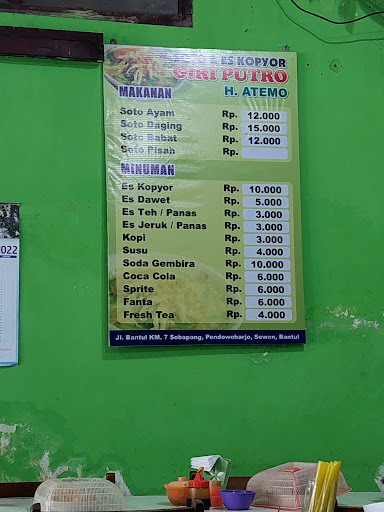 & ES KOPYOR
GIRI PUTRO
H. ATEMO
MAKANAN
Soto Ayam Rp. 12.000
Soto Daging Rp. 15.000
Soto Babat Rp. 12.000
Soto Pisah Rp.
MINUMAN
Es Kopyor Rp. 10.000
Es Dawet Rp. 5.000
Es Teh / Panas Rp. 3.000
Es Jeruk / Panas Rp. 3.000
Kopi Rp. 3.000
Susu Rp. 4.000
Soda Gembira Rp. 10.000
Coca Cola Rp. 6.000
Sprite Rp. 6.000
Fanta Rp. 6.000
Fresh Tea Rp. 4.000
Jl. Bantul KM. 7 Sebapang, Pendowoharjo, Sewon, Bantul
2022